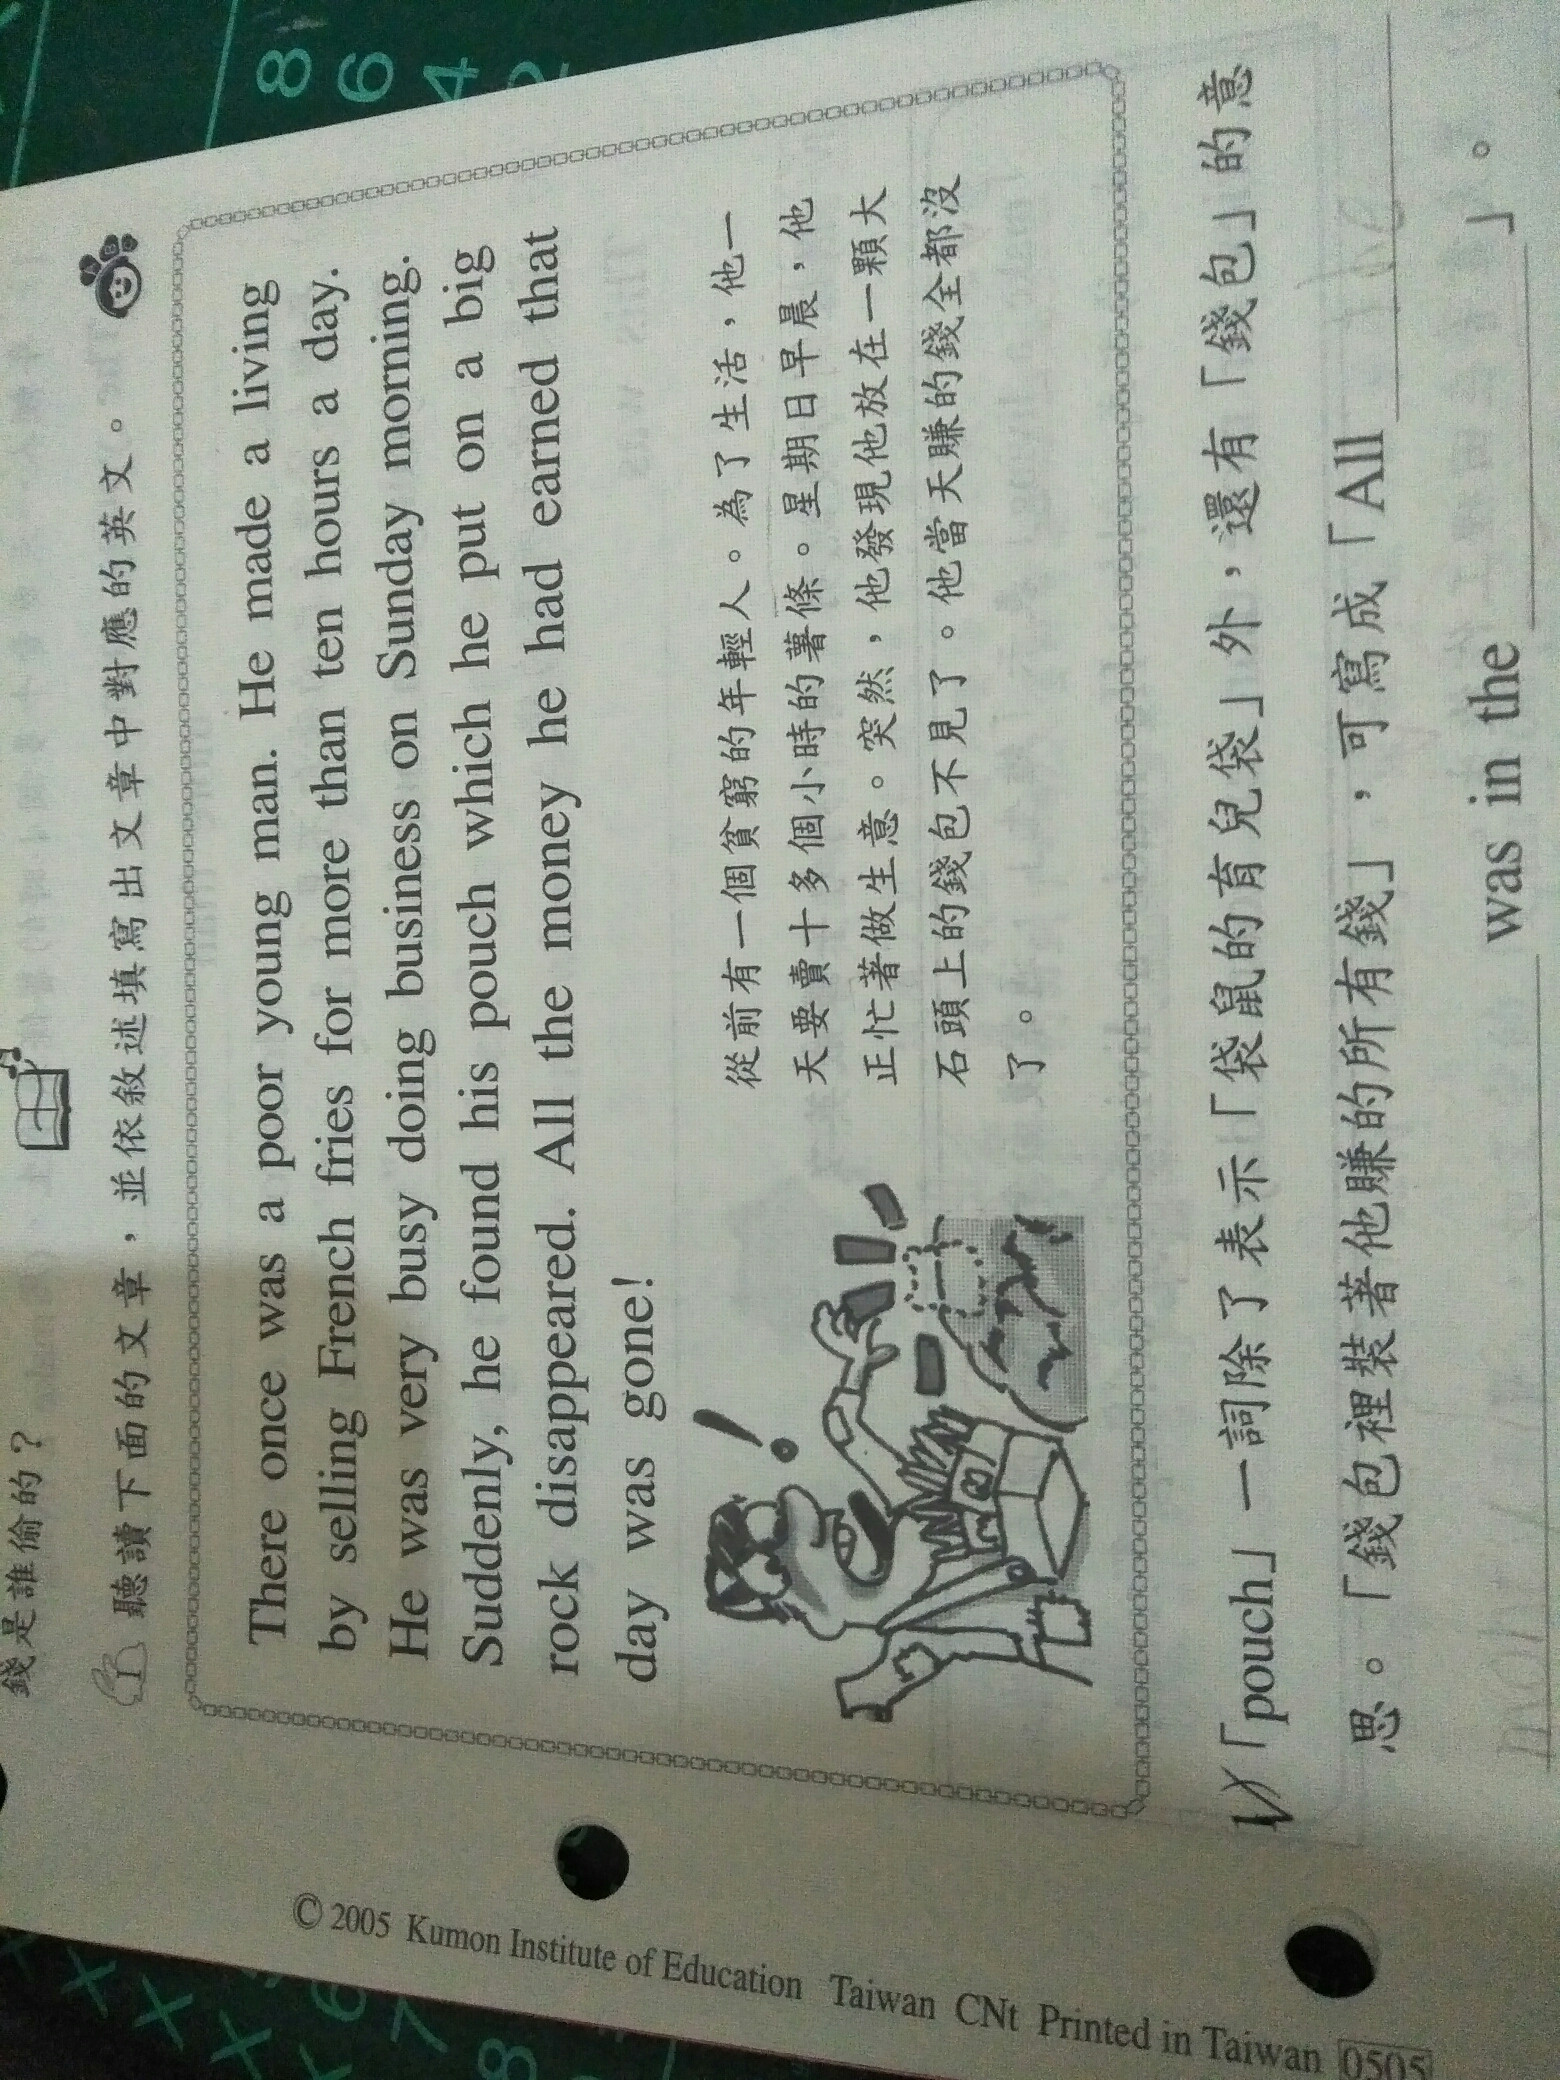 錢是誰偷的？
聽讀下面的文章，並依敘述填寫出文章中對應的英文。
There once was a poor young man. He made a living
by selling French fries for more than ten hours a day.
He was very busy doing business on Sunday morning.
Suddenly, he found his pouch which he put on a big
rock disappeared. All the money he had earned that
day was gone!
從前有一個貧窮的年輕人。為了生活，他一
天要賣十多個小時的薯條。星期日早晨，他
正忙著做生意。突然，他發現他放在一顆大
石頭上的錢包不見了。他當天賺的錢全都沒
了。
「pouch」一詞除了表示「袋鼠的育兒袋」外，還有「錢包」的意
思。「錢包裡裝著他賺的所有錢」，可寫成「All
was in the 」。
© 2005 Kumon Institute of Education Taiwan CNt Printed in Taiwan 0505
8
6
4
2
6
7
8